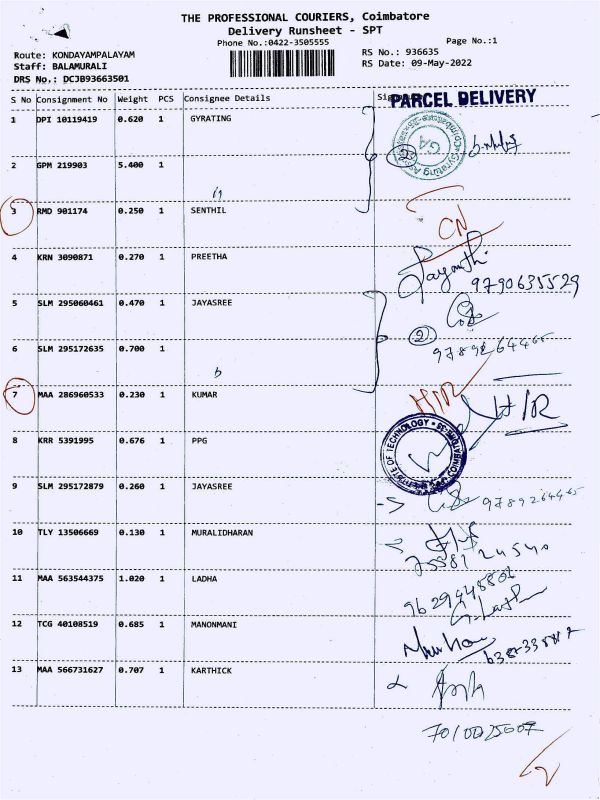 THE PROFESSIONAL COURIERS, Coimbatore
Delivery Runsheet - SPT
Phone No.:0422-3505555
Page No.:1
Route: KONDAYAMPALAYAM
RS No.: 936635
Staff: BALAMURALI
RS Date: 09-May-2022
DRS No.: DCJB93663501
S No Consignment No Weight PCS Consignee Details
PARCEL DELIVERY
1 DPI 10119419 0.620 1 GYRATING
2 GPM 219903 5.400 1
2
3 RMD 901174 0.250 1 SENTHIL
CN
4 KRN 3090871 0.270 1 PREETHA
Jayanthi
9790635529
5 SLM 295060461 0.470 1 JAYASREE
6 SLM 295172635 0.700 1
2
9789264465
7 MAA 286960533 0.230 1 KUMAR
H/R
8 KRR 5391995 0.676 1 PPG
INSTITUTE OF TECHNOLOGY
9 SLM 295172879 0.260 1 JAYASREE
9789264465
10 TLY 13506669 0.130 1 MURALIDHARAN
11 MAA 563544375 1.020 1 LADHA
12 TCG 40108519 0.685 1 MANONMANI
13 MAA 566731627 0.707 1 KARTHICK